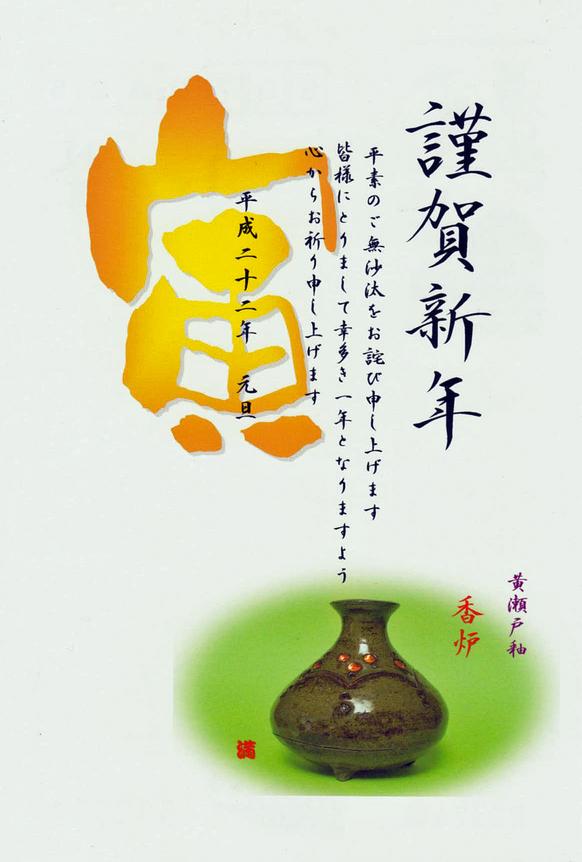 謹賀新年
平素のご無沙汰をお詫び申し上げます
皆様にとりまして幸多き一年となりますよう
心からお祈り申し上げます
平成二十二年 元旦
寅
黄瀬戸釉
香炉
満